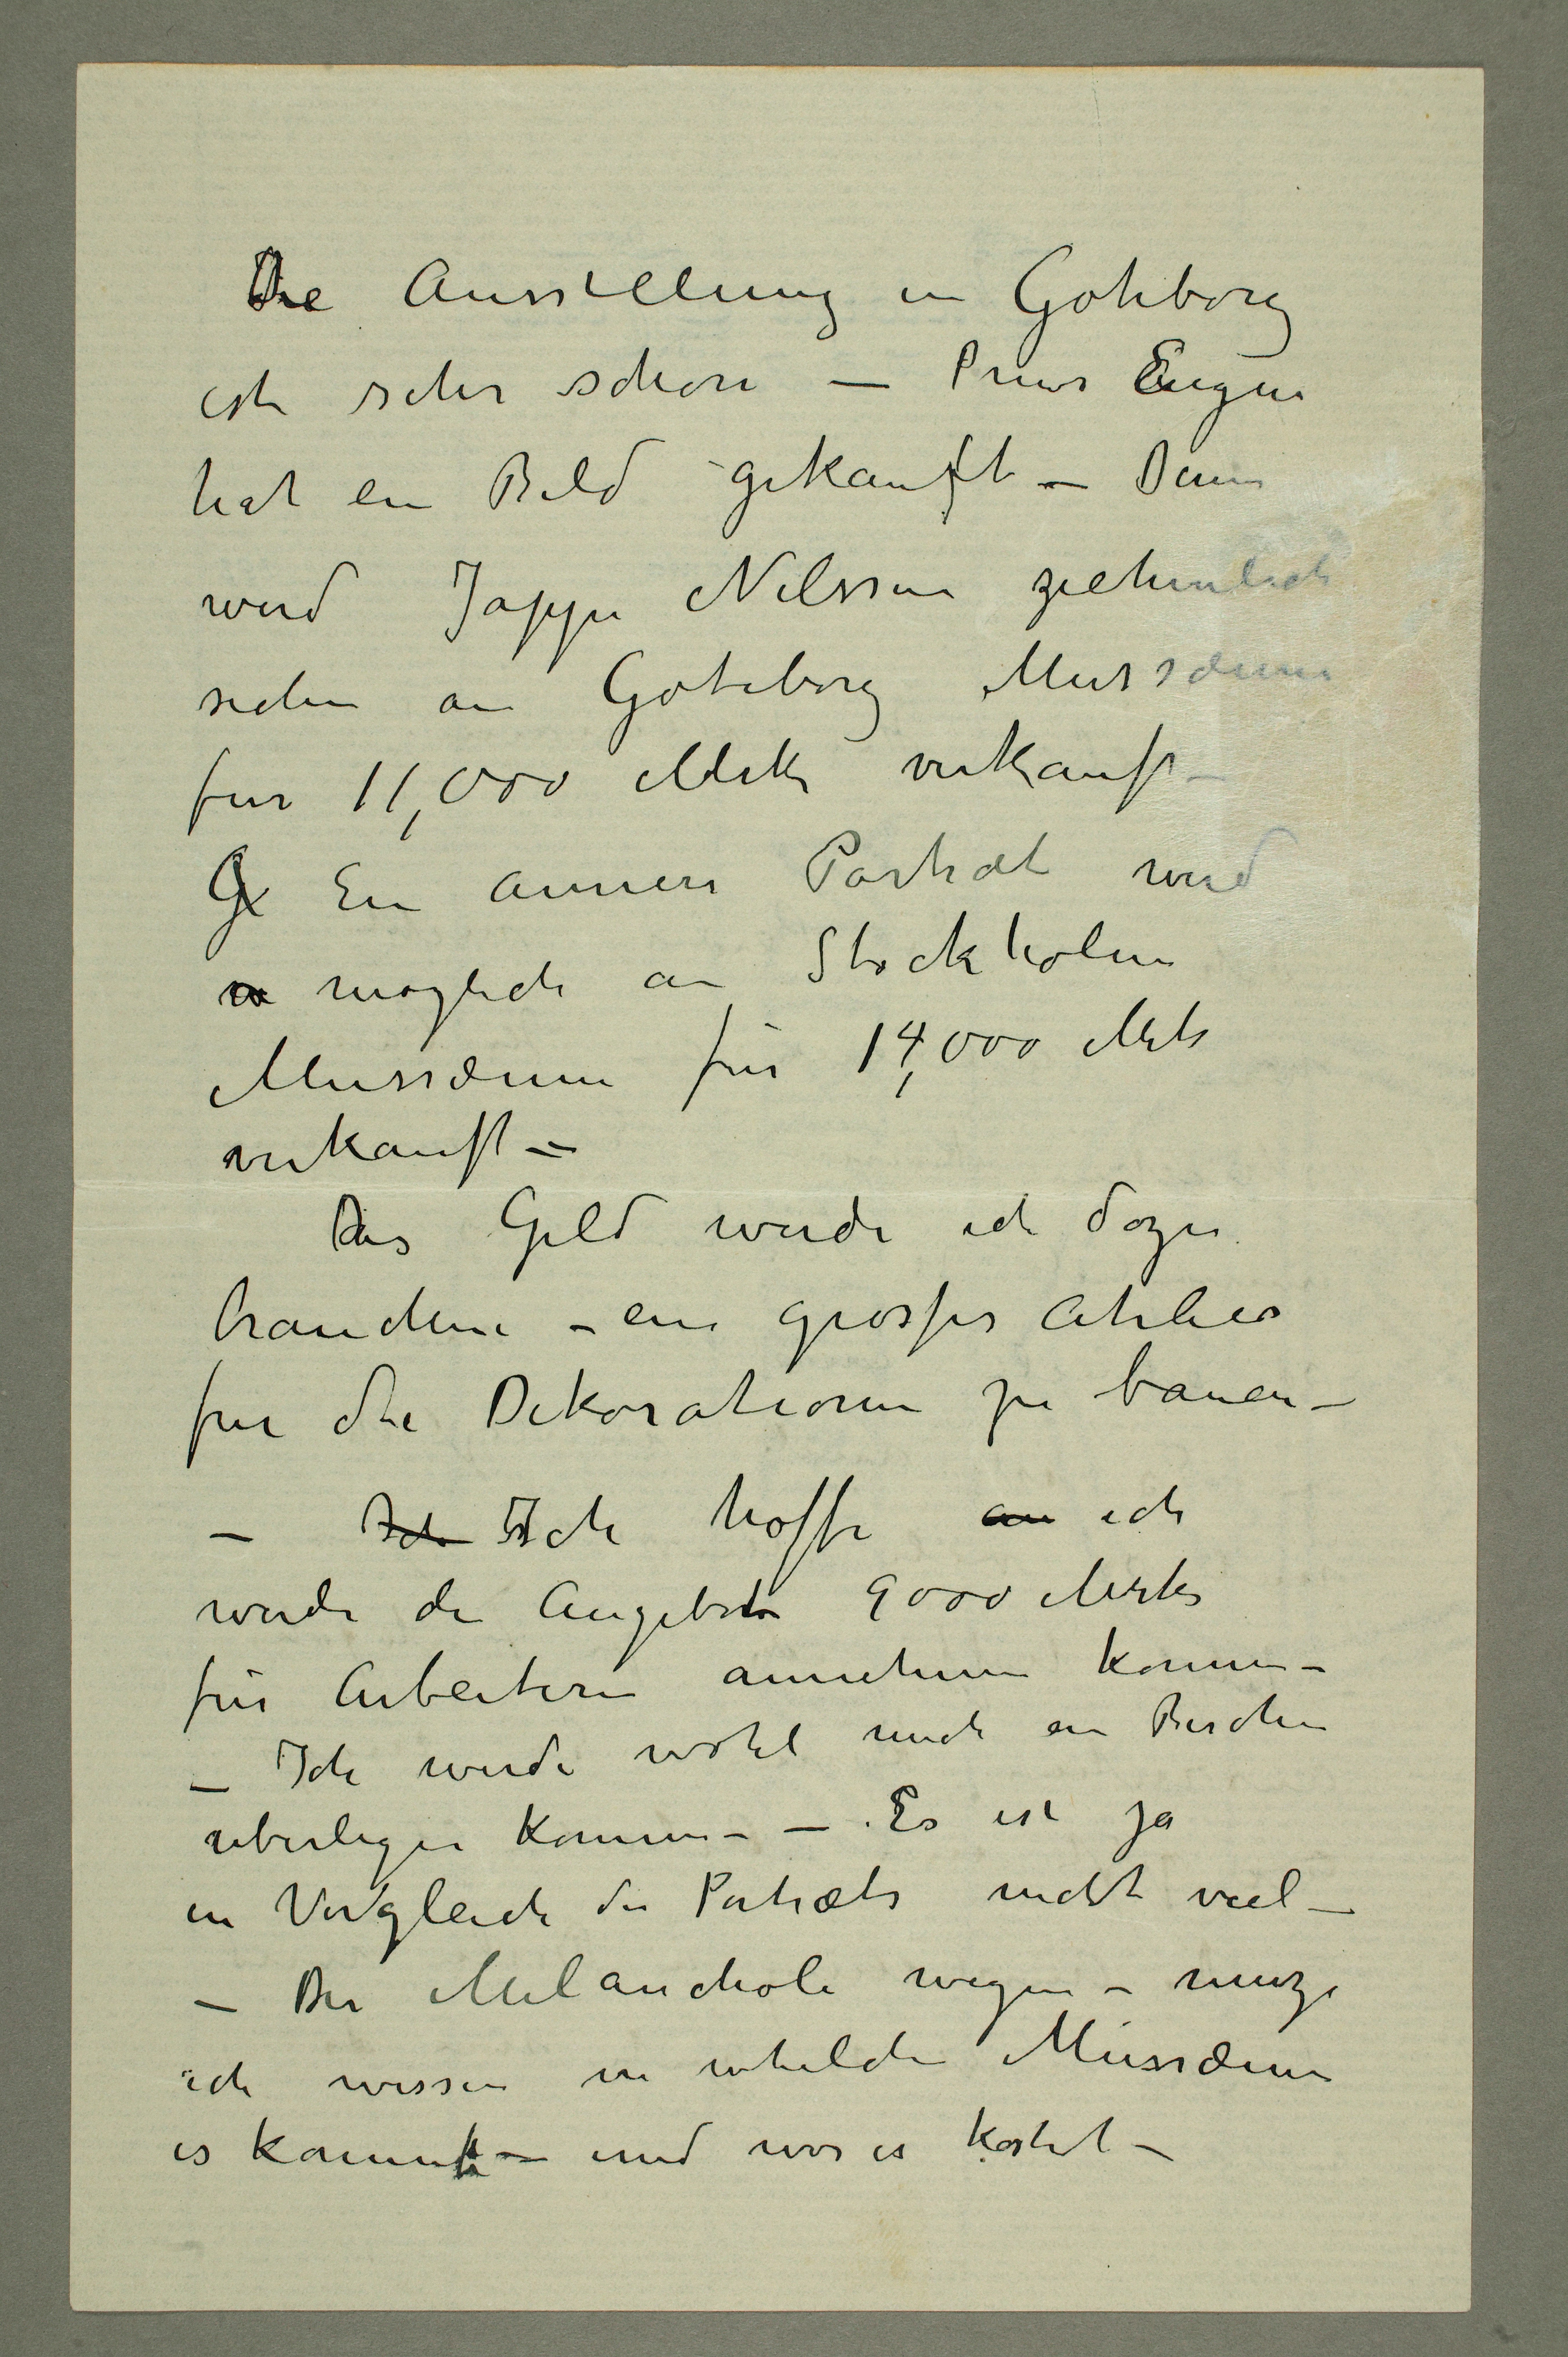 Die Ausstellung in Gøteborg
ist sehr schøn – Prins Eugen
hat ein Bild gekauft – Dann
wird Jappe Nilssen ziehmlich
sicher an Gøteborg Mussæum
fur 11,000 Mrk verkauft –
Ein annere Portræt wird
møglich an Stockholm
Mussæum für 14,000 Mrk
verkauft –
Das Geld werde ich dazu
brauchen – ein grosses Atelier
fur die Dekorationen zu bauen –
– Ich Ich hoffe an ich
werde die Angebot 9000 Mrk
für Arbeiteren annehmen konnen –
– Ich werde wohl mich ein Bischen
uberlegen konnen – – Es ist ja
in Vergleich die Portræts nicht viel –
– Der Melancholi wegen – muze
ich wissen in whelche Mussæum
es kommt – und was es kostet –